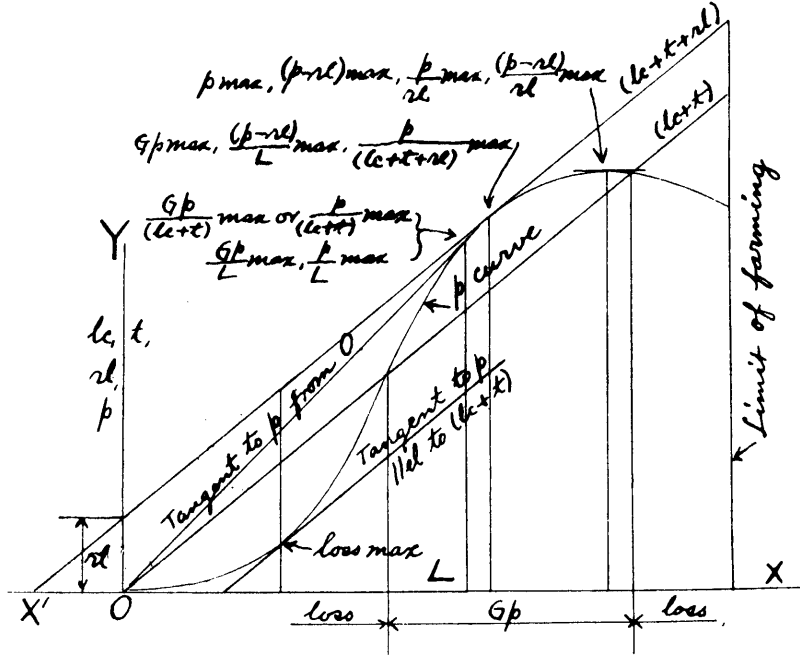 (lc+t+rl)
p max, (p-rl) max, p/rl max, (p-rl)/rl max
(lc+t)
Gp max, (p-rl)/L max, p/(lc+t+rl) max
Gp/(lc+t) max or p/(lc+t) max
Gp/L max, p/L max
Y
p curve
lc, t,
rl,
p
Tangent to p from O
Tangent to p
||el to (lc+t)
Limit of farming
rl
loss max
L
X
X'
O
loss
Gp
loss